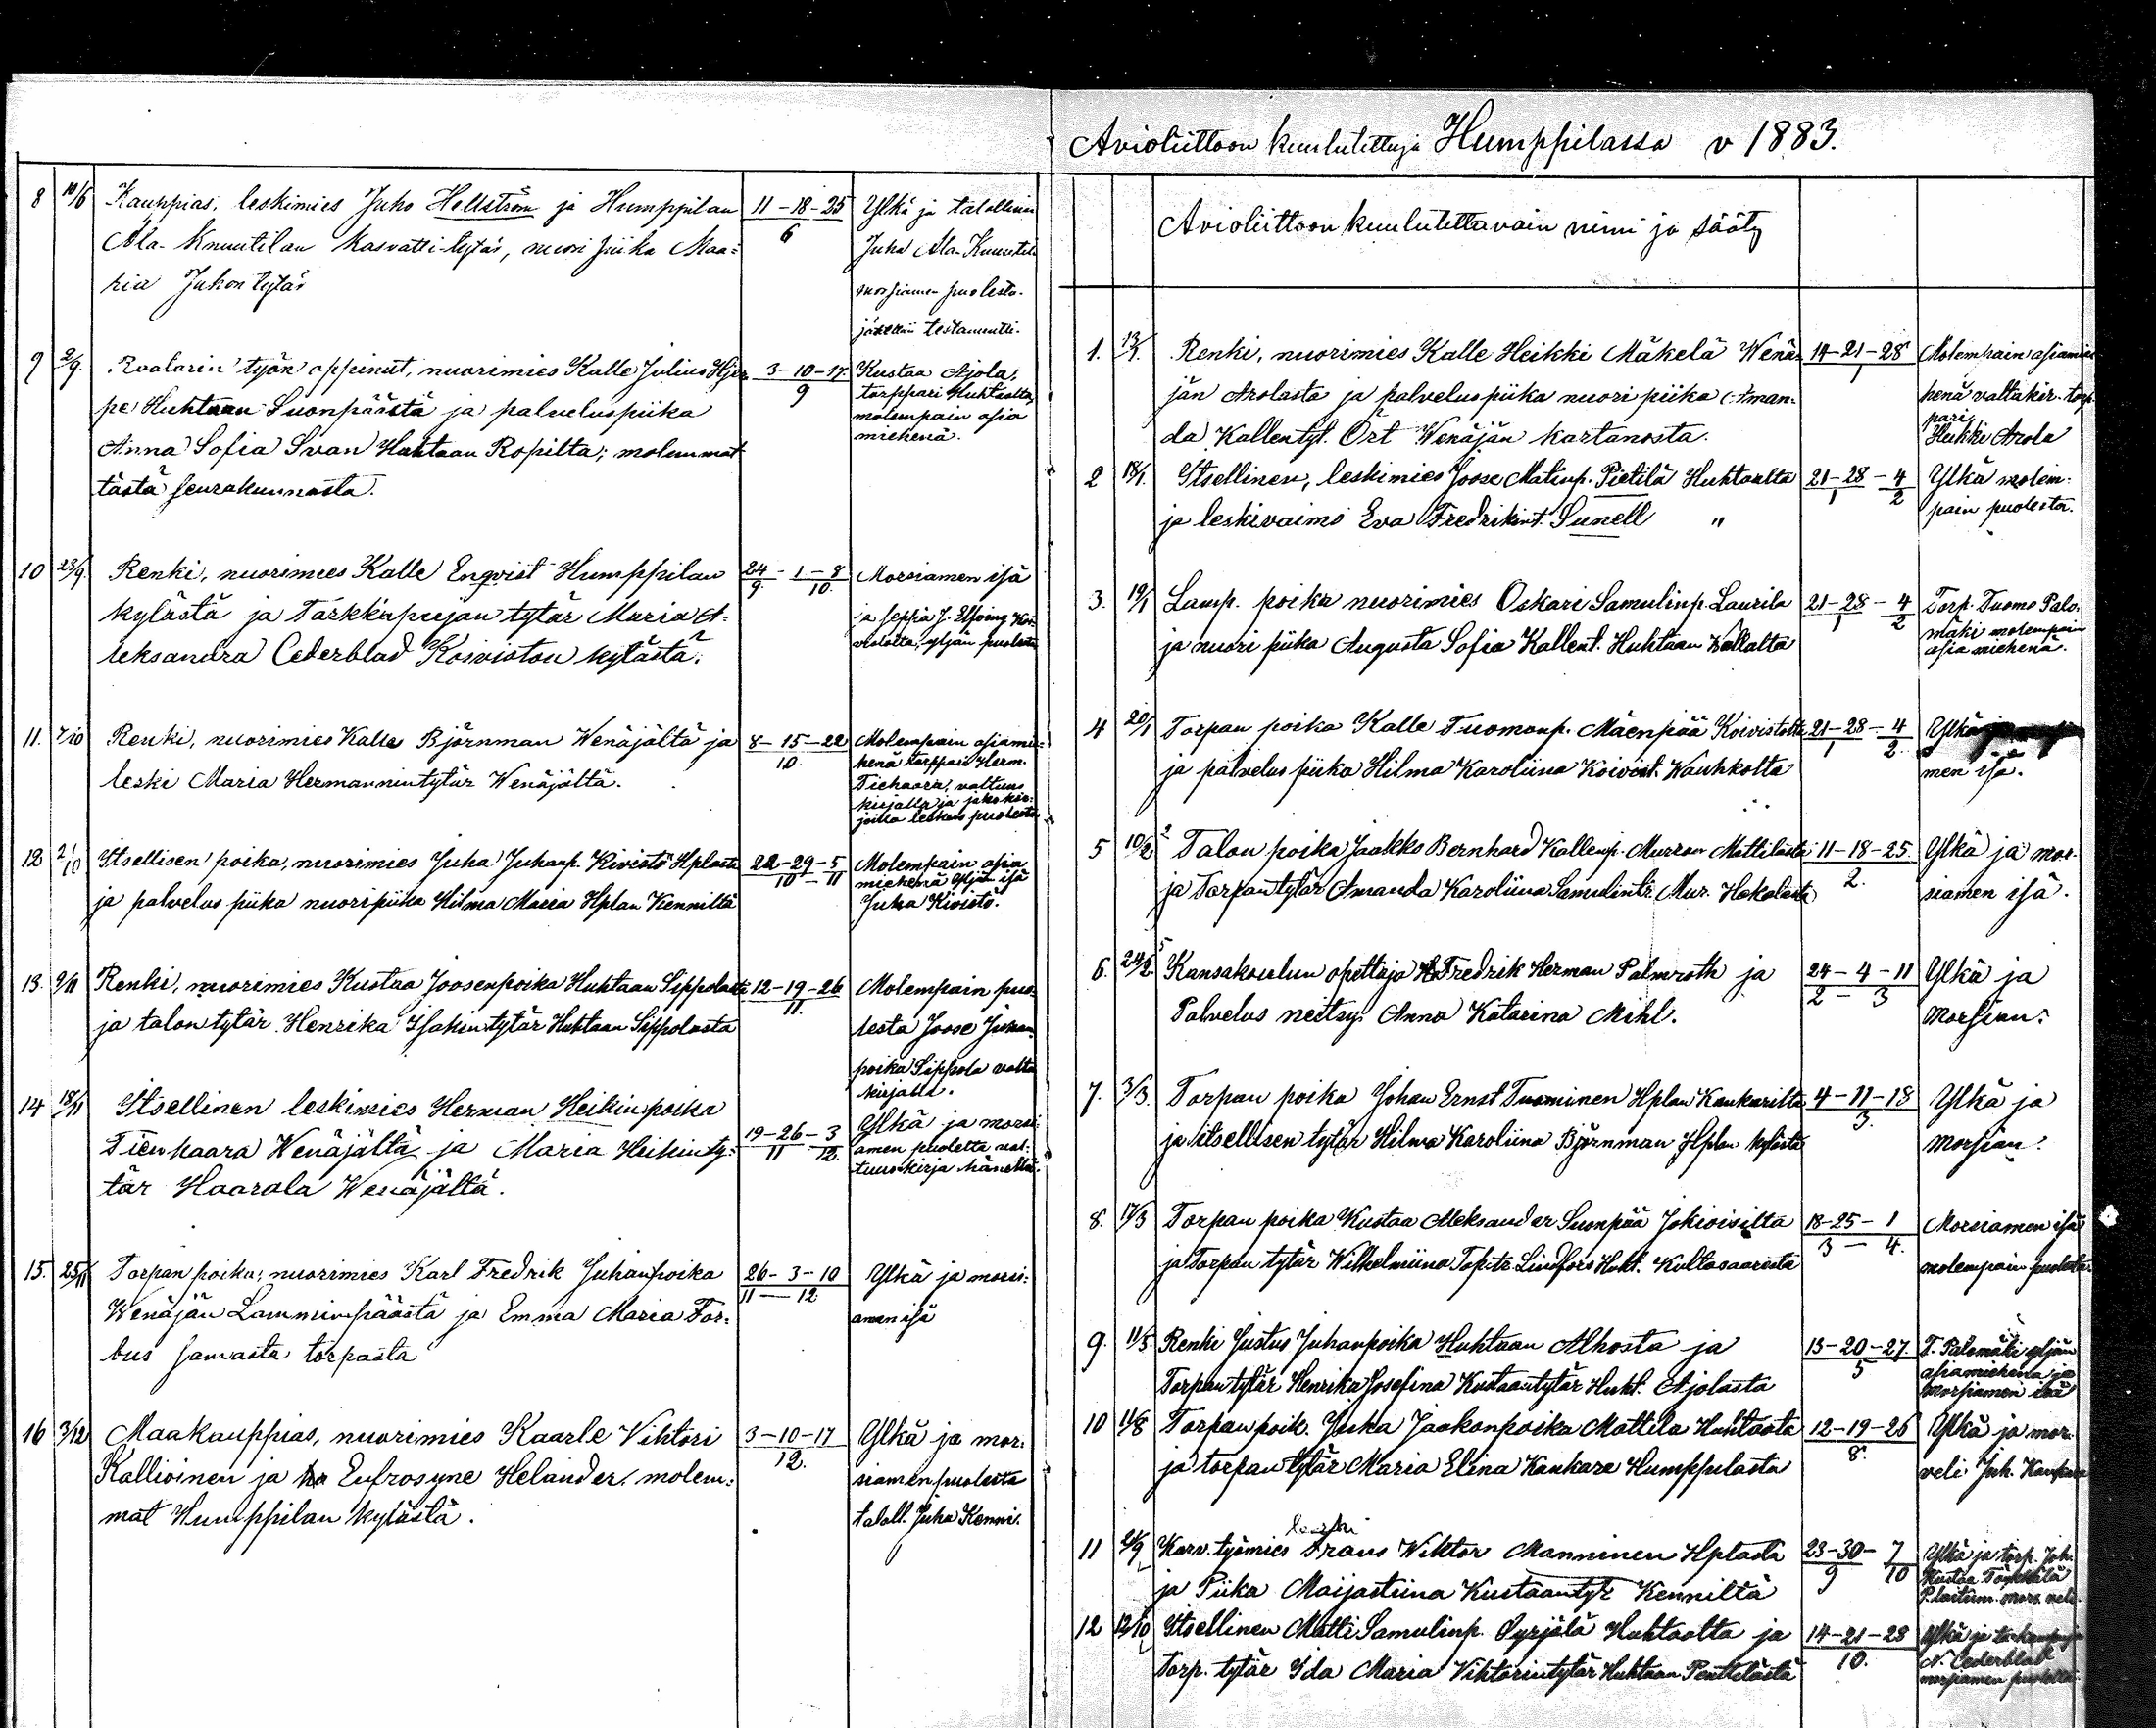 8 10/6 Kauppias, leskimies Juho Hellström ja Humppilan 11-18-25 Ylkä ja talollinen
Ala-Knuutilan kasvatti-tytär, nuori piika Maa= 6 Juha Ala-Knuutila
ria Juhontytär morsiamen puolesta.
testamentti.
9 2/9. Raatarin työn oppinut, nuorimies Kalle Julius Hjer 3-10-17. Kustaa Ajola,
pe Huhtaan Suonpäästä ja palveluspiika 9 torppari Huhtaalta
Anna Sofia Svan Huhtaan Ropilta; molemmat molempain asia
tästä seurakunnasta. miehenä.
10 23/9. Renki, nuorimies Kalle Enqvist Humppilan 24-1-8 Morsiamen isä
kylästä ja Tarkk'ampujan tytär Maria A= 9. 10. ja seppä J.
leksandra Cederblad Koiviston kylästä. yljän puolesta
11. 7/10 Renki, nuorimies Kalle Björnman Wenäjältä ja 8-15-22 Molempain asiamie=
leski Maria Hermannintytär Wenäjältä. 10. henä torppari Herm.
Tiehaara, valtuus
kirjalla ja jakokir=
joilla lesken puolesta
12 21/10 Itsellisen poika, nuorimies Juha Juhanp. Kivistö Hplasta 22-29-5 Molempain asia
ja palvelus piika nuoripiika Hilma Maria Hplan Kenniltä 10-11 miehenä yljän isä
Juha Kivistö.
13. 9/11 Renki, nuorimies Kustaa Joosenpoika Huhtaan Sippolasta 12-19-26 Molempain puo=
ja talon tytär Henrika Isakintytär Huhtaan Sippolasta 11. lesta Joose Juhan
poika Sippola valta
kirjalla.
14 18/11 Itsellinen leskimies Herman Heikinpoika 19-26-3 Ylkä ja morsi=
Tienhaara Wenäjältä ja Maria Heikinty= 11 12. amen puolesta val=
tär Haarala Wenäjältä. tuuskirja hänellä.
15. 25/11 Torpan poika, nuorimies Karl Fredrik Juhanpoika 26-3-10 Ylkä ja morsi=
Wenäjän Lamminpäästä ja Emma Maria For= 11—12 amen isä
bus samasta torpasta
16 3/12 Maakauppias, nuorimies Kaarle Vihtori 3-10-17 Ylkä ja mor=
Kallioinen ja Eufrosyne Helander, molem= 12. siamen puolesta
mat Humppilan kylästä. taloll. Juha Kenni.
Avioliittoon kuulutettuja Humppilassa v 1883.
Avioliittoon kuulutettavain nimi ja sääty
1. 13/1. Renki, nuorimies Kalle Heikki Mäkelä Wenä= 14-21-28 Molempain asiamie
jän Arolasta ja palveluspiika nuori piika Aman= 1 henä valtakir. torp
da Kallentyt. Ört Wenäjän kartanosta. pari Heikki Arola
2 18/1. Itsellinen, leskimies Joose Matinp. Pietilä Huhtaalta 21-28-4 Ylkä molem=
ja leskivaimo Eva Fredrikint. Sunell " 1 2 pain puolesta.
3. 19/1 Lamp. poika nuorimies Oskari Samulinp. Laurila 21-28-4 Torp. Tuomo Palo=
ja nuori piika Augusta Sofia Kallent. Huhtaan 1 2 mäki molempain
asia miehenä.
4 20/1 Torpan poika Kalle Tuomanp. Mäenpää Koivistolta 21-28-4 Ylkä
ja palvelus piika Hilma Karoliina Koivist. Wauhkolta 1 2. men isä.
5 10/2 Talon poika Jaakko Bernhard Kallenp. Murron Mattilasta 11-18-25. Ylkä ja mor=
ja Torpan tytär Amanda Karoliina Samulintr. Mur. Hakolasta 2. siamen isä.
6. 24/2 Kansakoulun opettaja Fredrik Herman Palmroth ja 24-4-11 Ylkä ja
Palvelus neitsy. Anna Katarina Mihl. 2-3 morsian.
7. 3/3. Torpan poika Johan Ernst Tuominen Hplan Kankarilta 4-11-18 Ylkä ja
ja itsellisen tytär Hilma Karoliina Björnman Hplan kylästä 3. morsian.
8. 17/3 Torpan poika Kustaa Aleksander Suonpää Jokioisilta 18-25-1 Morsiamen isä
ja Torpan tytär Wilhelmiina Lindfors Huht. Kultasaaresta 3—4. molempain puolesta.
9. 11/5. Renki Justus Juhanpoika Huhtaan Alhosta ja 13-20-27. T. Palomäki yljän
Torpan tytär Henrika Josefina Kustaantytär Huht. Ajolasta 5 asiamiehenä ja
morsiamen isä
10 11/8 Torpan poik. Juha Jaakonpoika Mattila Huhtaata 12-19-26 Ylkä ja mor.
ja torpan tytär Maria Elina Kankare Humppilasta 8. veli Juh. Kankare
leski
11 Karv. työmies Frans Wiktor Manninen Hplasta 23-30-7 Ylkä ja torp. Joh.
ja Piika Maijastiina Kustaantyr Kenniltä 9 10 Kustaa
mors. veli.
12 12/10 Itsellinen Matti Samulinp. Syrjälä Huhtaalta ja 14-21-28 Ylkä ja
Torp. tytär Ida Maria Vihtorintytär Huhtaan Penttilästä 10. N. Cederblad
morsiamen puolelta.